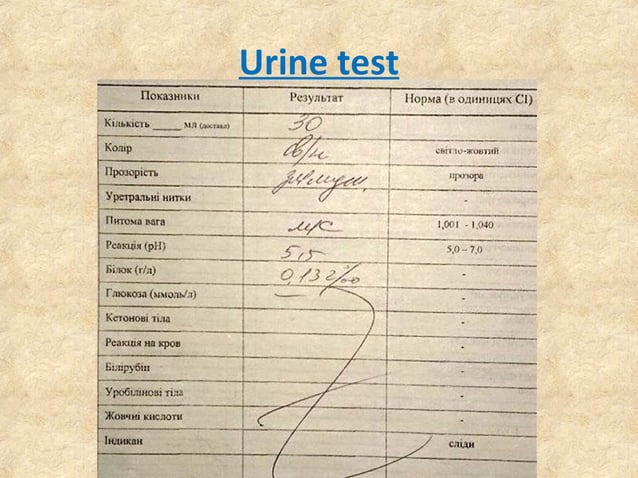 Urine test
Показники Результат Норма (в одиницях СІ)
Кількість _____ мл (доставл) 30
Колір св/ж світло-жовтий
Прозорість прозора
Уретральні нитки -
Питома вага м/с 1,001 - 1,040
Реакція (pH) 5,5 5,0 – 7,0
Білок (г/л) 0,132 ‰ -
Глюкоза (ммоль/л) — -
Кетонові тіла -
Реакція на кров -
Білірубін -
Уробілінові тіла -
Жовчні кислоти -
Індикан сліди